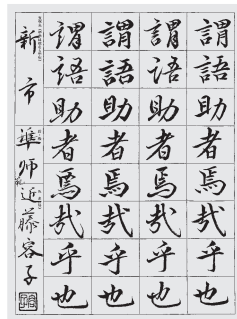 謂語助者焉哉乎也
謂語助者焉哉乎也
謂語助者焉哉乎也
謂語助者焉哉乎也
新市 準師範 近藤容子